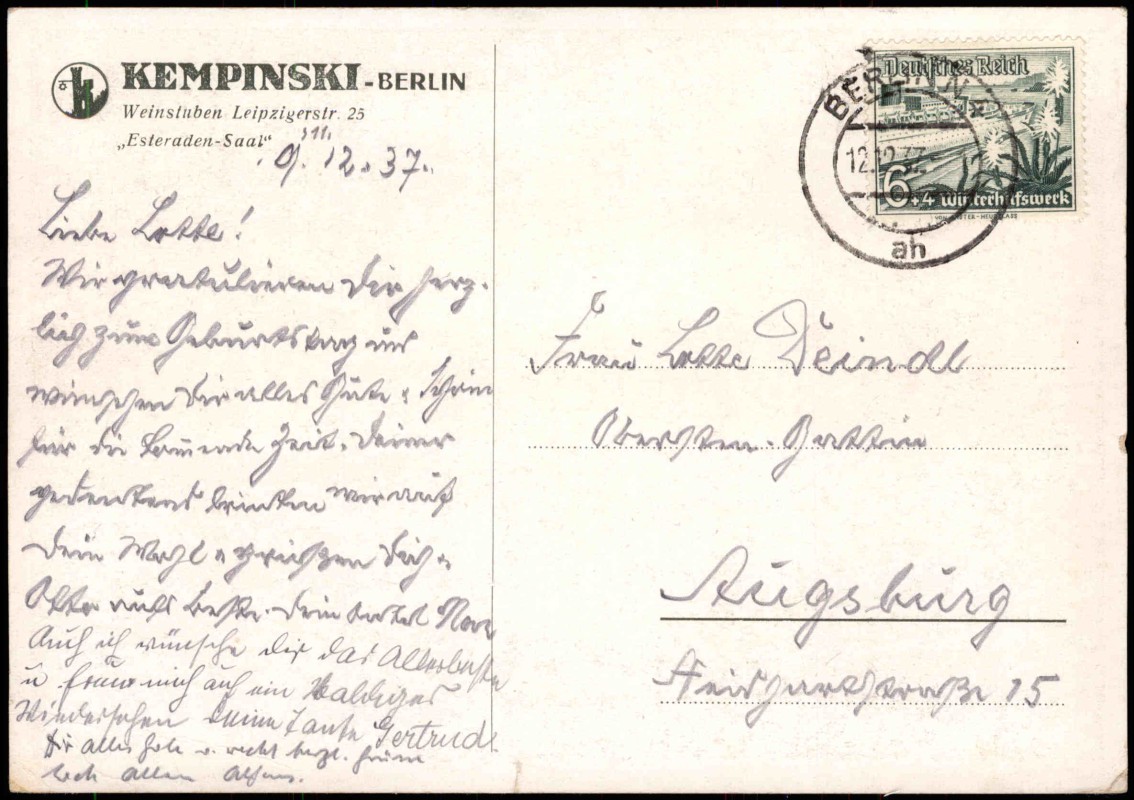 KEMPINSKI-BERLIN
Weinstuben Leipzigerstr. 25
„Esteraden-Saal"
9. 12. 37.
Liebe Lotte!
Wir gratulieren Dir herz-
lich zum Geburtstag und
wünschen Dir alles Gute u. Schöne
für die kommende Zeit. Deiner
gedenkend trinken wir auf
Dein Wohl u. grüßen Dich u.
Otto aufs beste. Dein
Auch ich wünsche dir das Allerbeste
u freue mich auf ein baldiges
Wiedersehen Deine Tante Gertrud
Dir alles u. recht herzl.
Deutsches Reich
6+4 Winterhilfswerk
BERLIN
12.12.37
ah
Frau Lotte Deindl
Obersten-Gattin
Augsburg
straße 15